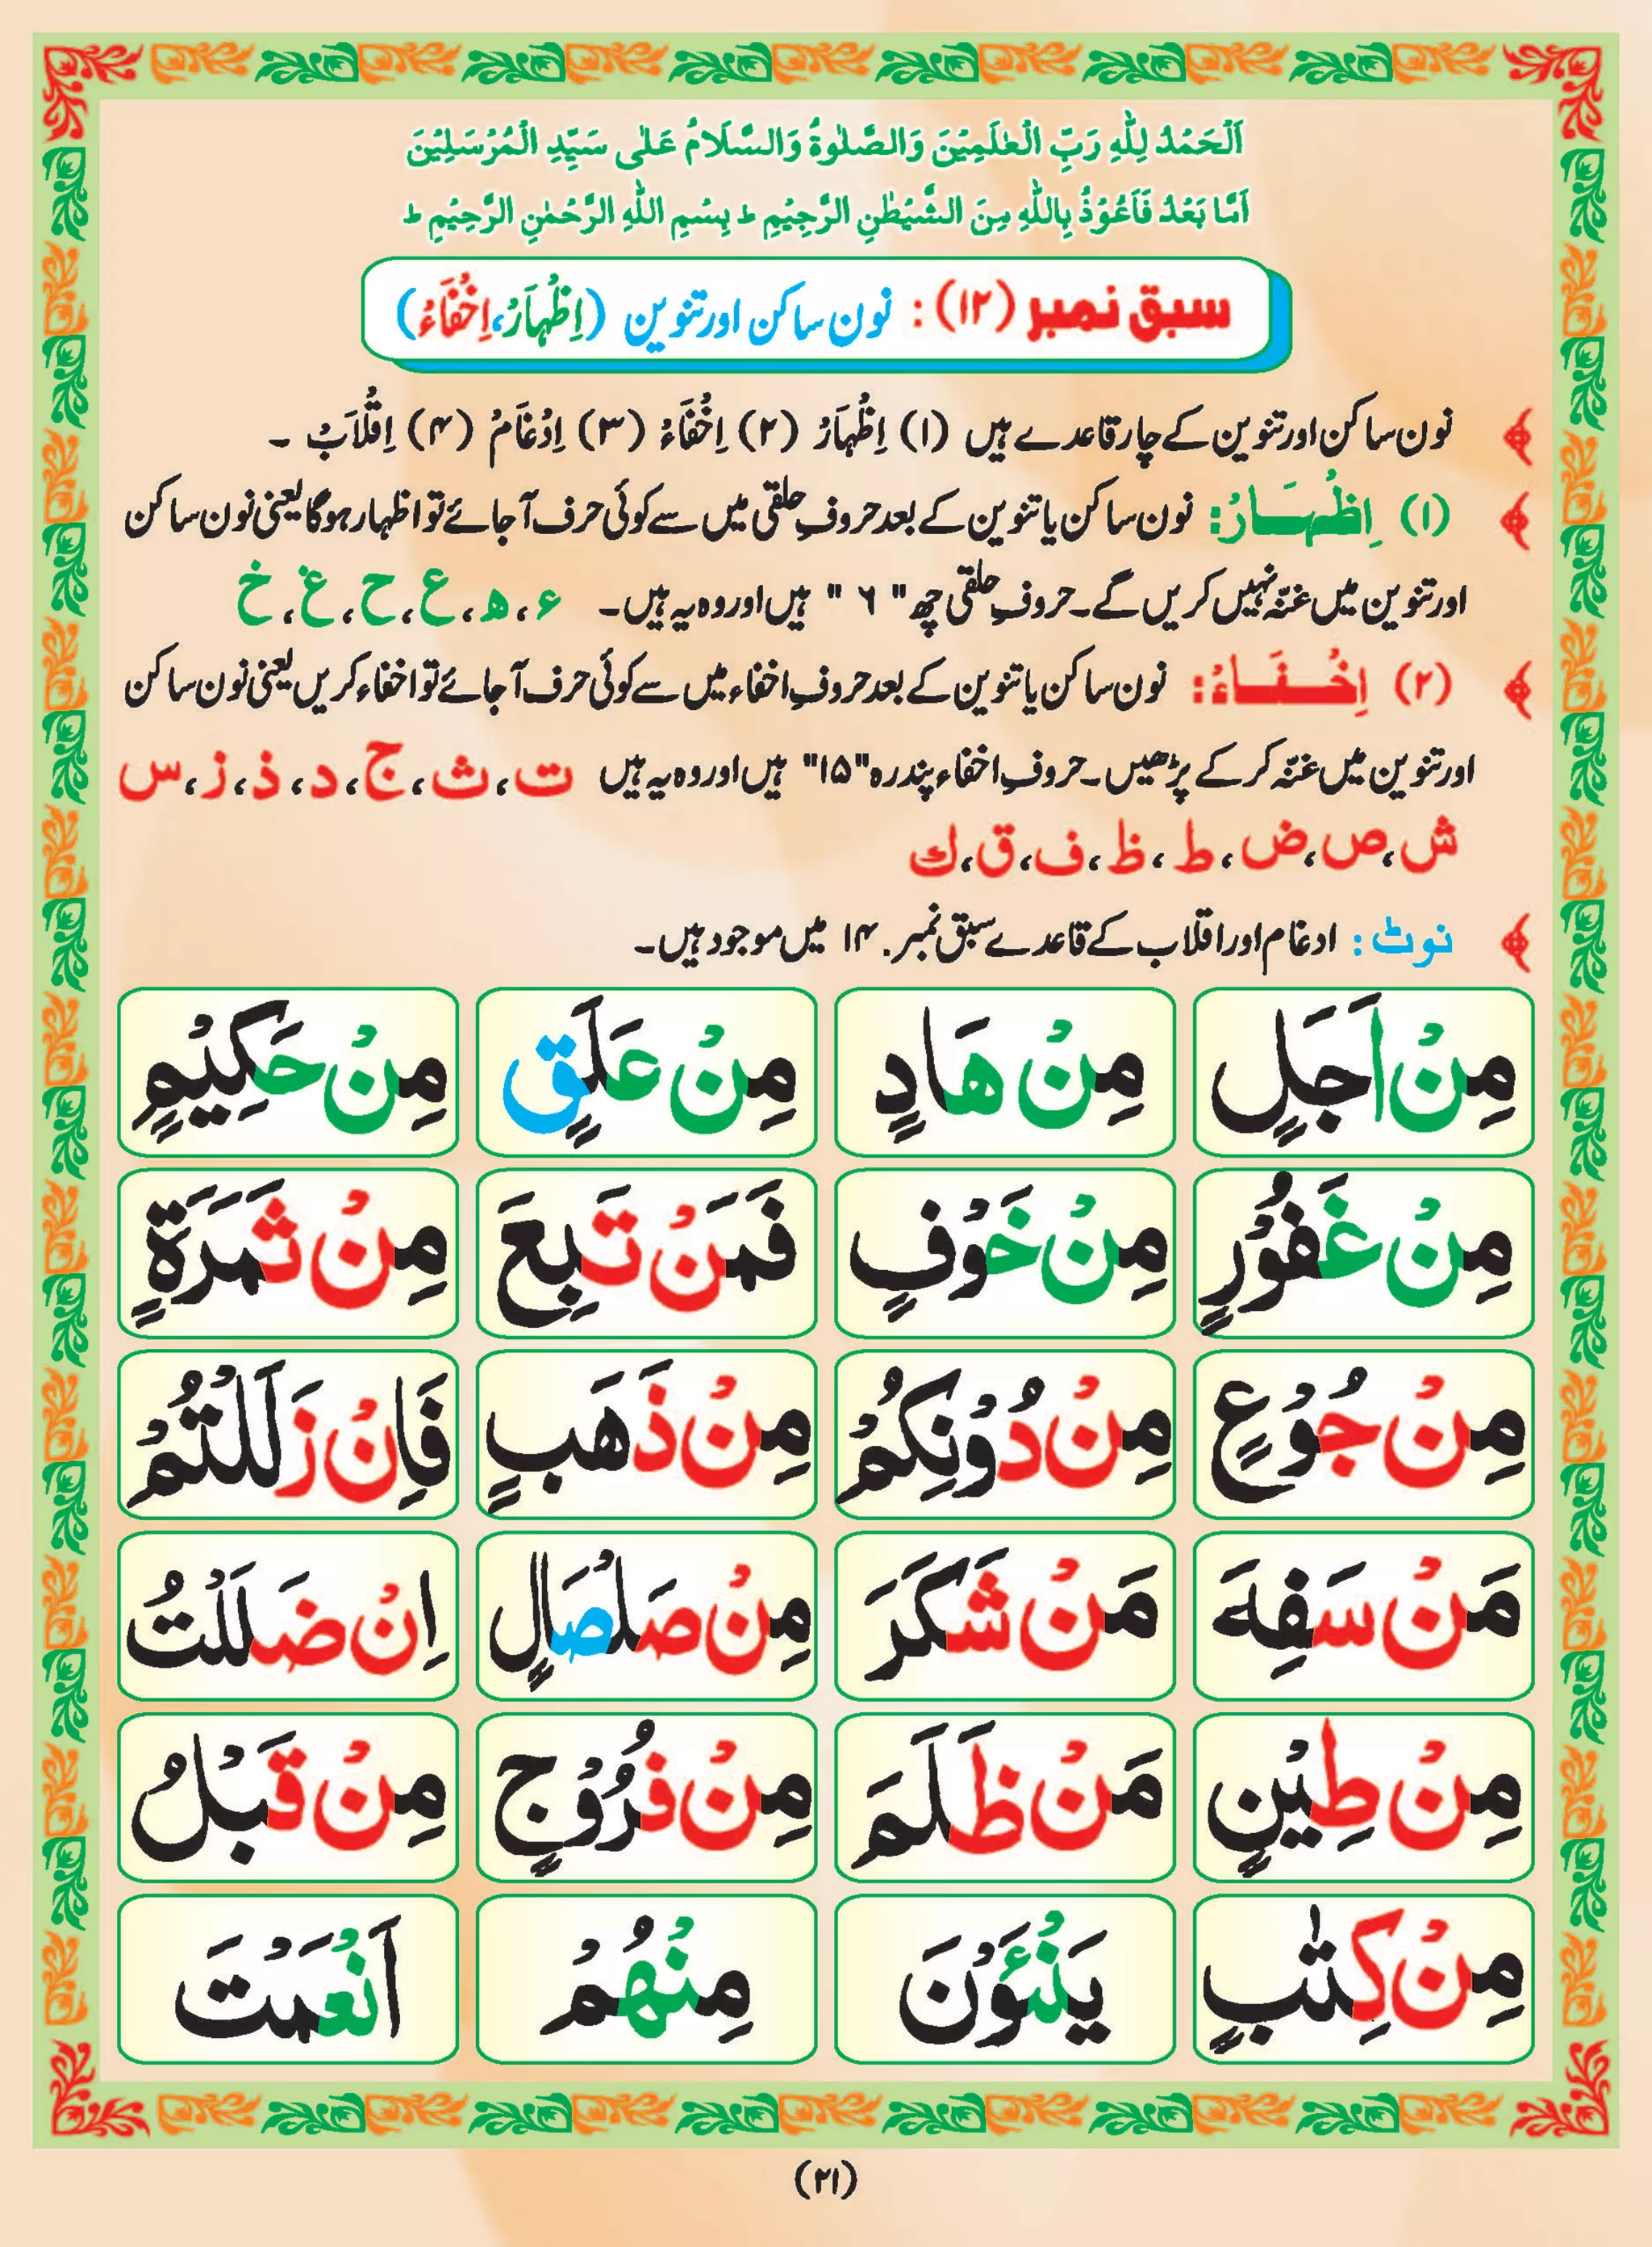 اَلْحَمْدُ لِلّٰهِ رَبِّ الْعٰلَمِيْنَ وَالصَّلٰوةُ وَالسَّلَامُ عَلٰى سَيِّدِ الْمُرْسَلِيْنَ
اَمَّا بَعْدُ فَاَعُوْذُ بِاللّٰهِ مِنَ الشَّيْطٰنِ الرَّجِيْمِ ط بِسْمِ اللّٰهِ الرَّحْمٰنِ الرَّحِيْمِ ط
سبق نمبر (۱۲) : نون ساکن اور تنوین (اِظْہَارْ، اِخْفَاءْ)
نون ساکن اور تنوین کے چار قاعدے ہیں (۱) اِظْہَارْ (۲) اِخْفَاءْ (۳) اِدْغَامْ (۴) اِقْلَابْ ۔
(۱) اِظْہَارْ: نون ساکن یا تنوین کے بعد حروفِ حلقی میں سے کوئی حرف آجائے تو اظہار ہوگا یعنی نون ساکن
اور تنوین میں غنّہ نہیں کریں گے۔ حروفِ حلقی چھ "۶" ہیں اور وہ یہ ہیں۔ ء، ھ، ع، ح، غ، خ
(۲) اِخْفَاءْ: نون ساکن یا تنوین کے بعد حروفِ اخفاء میں سے کوئی حرف آجائے تو اخفاء کریں یعنی نون ساکن
اور تنوین میں غنّہ کر کے پڑھیں۔ حروفِ اخفاء پندرہ "۱۵" ہیں اور وہ یہ ہیں ت، ث، ج، د، ذ، ز، س
ش، ص، ض، ط، ظ، ف، ق، ك
نوٹ: ادغام اور اقلاب کے قاعدے سبق نمبر ۱۴ میں موجود ہیں۔
مِنْ اَجَلٍ مِنْ هَادٍ مِنْ عَلَقٍ مِنْ حَكِيْمٍ
مِنْ غَفُوْرٍ مِنْ خَوْفٍ فَمَنْ تَبِعَ مِنْ ثَمَرَةٍ
مِنْ جُوْعٍ مِنْ دُوْنِكُمْ مِنْ ذَهَبٍ فَاِنْ زَلَلْتُمْ
مَنْ سَفِهَ مَنْ شَكَرَ مِنْ صَلْصَالٍ اِنْ ضَلَلْتُ
مِنْ طِيْنٍ مَنْ ظَلَمَ مِنْ فُرُوْجٍ مِنْ قَبْلُ
مِنْ كِتٰبٍ يَنْئَوْنَ مِنْهُمْ اَنْعَمْتَ
(۲۱)